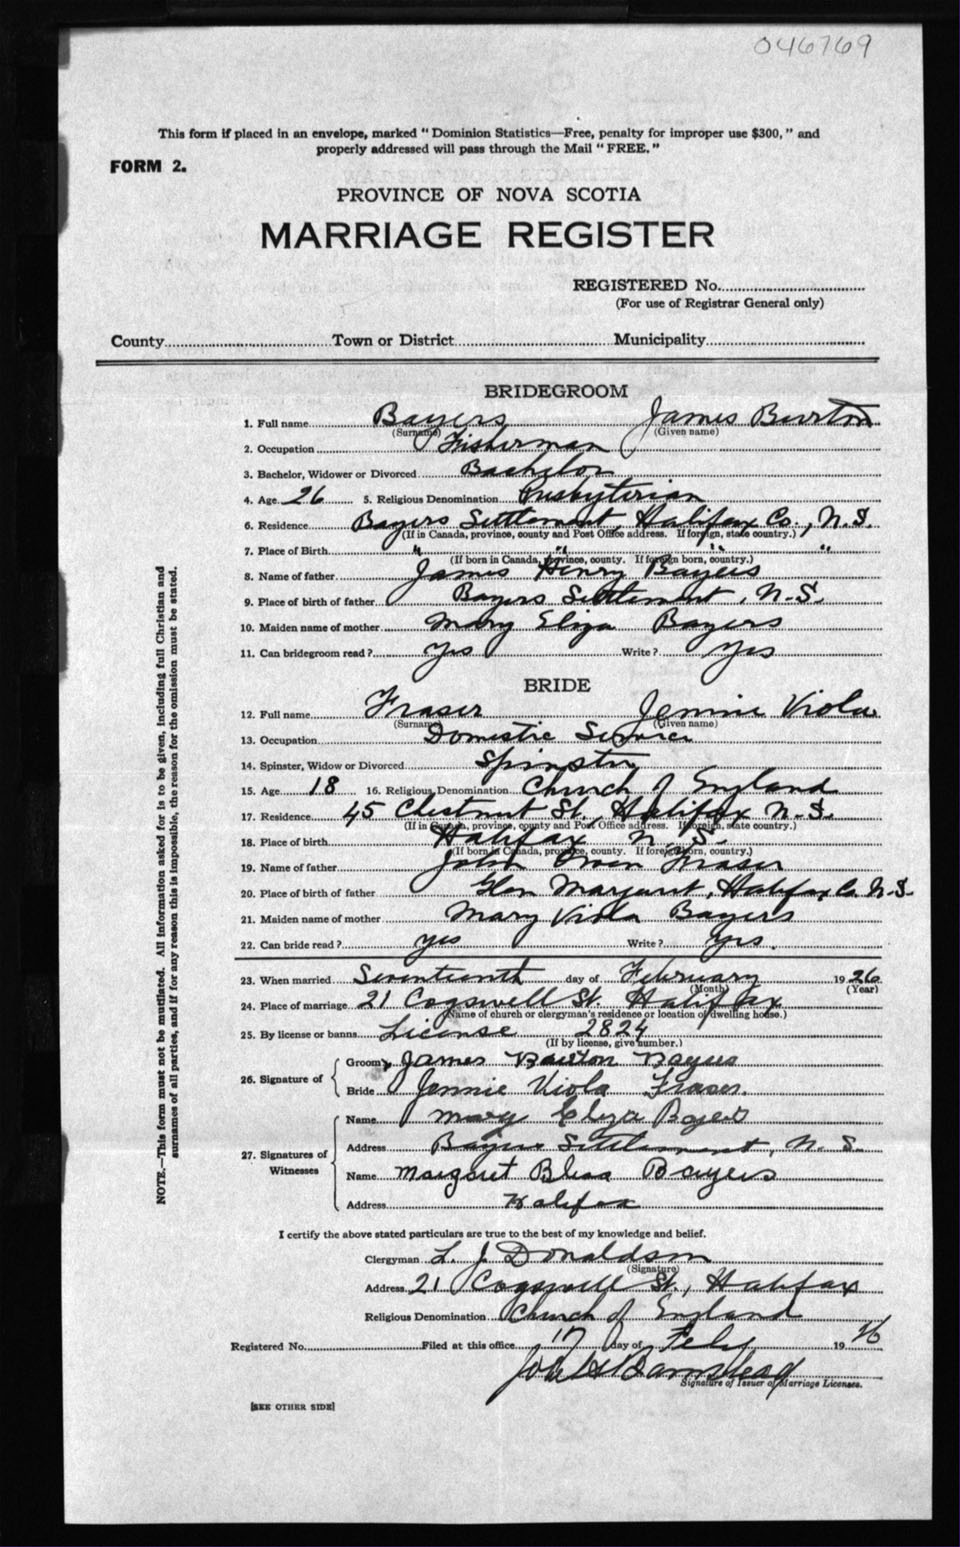 046769
This form if placed in an envelope, marked " Dominion Statistics—Free, penalty for improper use $300, " and
properly addressed will pass through the Mail " FREE. "
FORM 2.
PROVINCE OF NOVA SCOTIA
MARRIAGE REGISTER
REGISTERED No.
(For use of Registrar General only)
County Town or District Municipality
BRIDEGROOM
1. Full name Bayers James Burton
(Surname) (Given name)
2. Occupation Fisherman
3. Bachelor, Widower or Divorced Bachelor
4. Age 26 5. Religious Denomination Presbyterian
6. Residence Bayers Settlement, Halifax Co., N.S.
(If in Canada, province, county and Post Office address. If foreign, state country.)
7. Place of Birth " " " "
(If born in Canada, province, county. If foreign born, country.)
8. Name of father James Henry Bayers
9. Place of birth of father Bayers Settlement, N.S.
10. Maiden name of mother Mary Eliza Bayers
11. Can bridegroom read ? Yes Write ? Yes
BRIDE
12. Full name Fraser Jennie Viola
(Surname) (Given name)
13. Occupation Domestic Service
14. Spinster, Widow or Divorced Spinster
15. Age 18 16. Religious Denomination Church of England
17. Residence 45 Chestnut St. Halifax N.S.
(If in Canada, province, county and Post Office address. If foreign, state country.)
18. Place of birth Halifax N.S.
(If born in Canada, province, county. If foreign born, country.)
19. Name of father John Owen Fraser
20. Place of birth of father Glen Margaret, Halifax Co N.S.
21. Maiden name of mother Mary Viola Bayers
22. Can bride read ? yes Write ? Yes.
23. When married Seventeenth day of February 1926
(Month) (Year)
24. Place of marriage 21 Cogswell St. Halifax
(Name of church or clergyman's residence or location of dwelling house.)
25. By license or banns License 2824
(If by license, give number.)
26. Signature of
Groom James Burton Bayers
Bride Jennie Viola Fraser.
27. Signatures of Witnesses
Name Mary Eliza Bayers
Address Bayers Settlement, N.S.
Name Margaret Bayers
Address Halifax
I certify the above stated particulars are true to the best of my knowledge and belief.
Clergyman L. J. Donaldson
(Signature)
Address 21 Cogswell St., Halifax
Religious Denomination Church of England
Registered No. Filed at this office 17 day of Feby 1926
Signature of Issuer of Marriage Licenses.
[SEE OTHER SIDE]
NOTE.—This form must not be mutilated. All information asked for is to be given, including full Christian and
surnames of all parties, and if for any reason this is impossible, the reason for the omission must be stated.